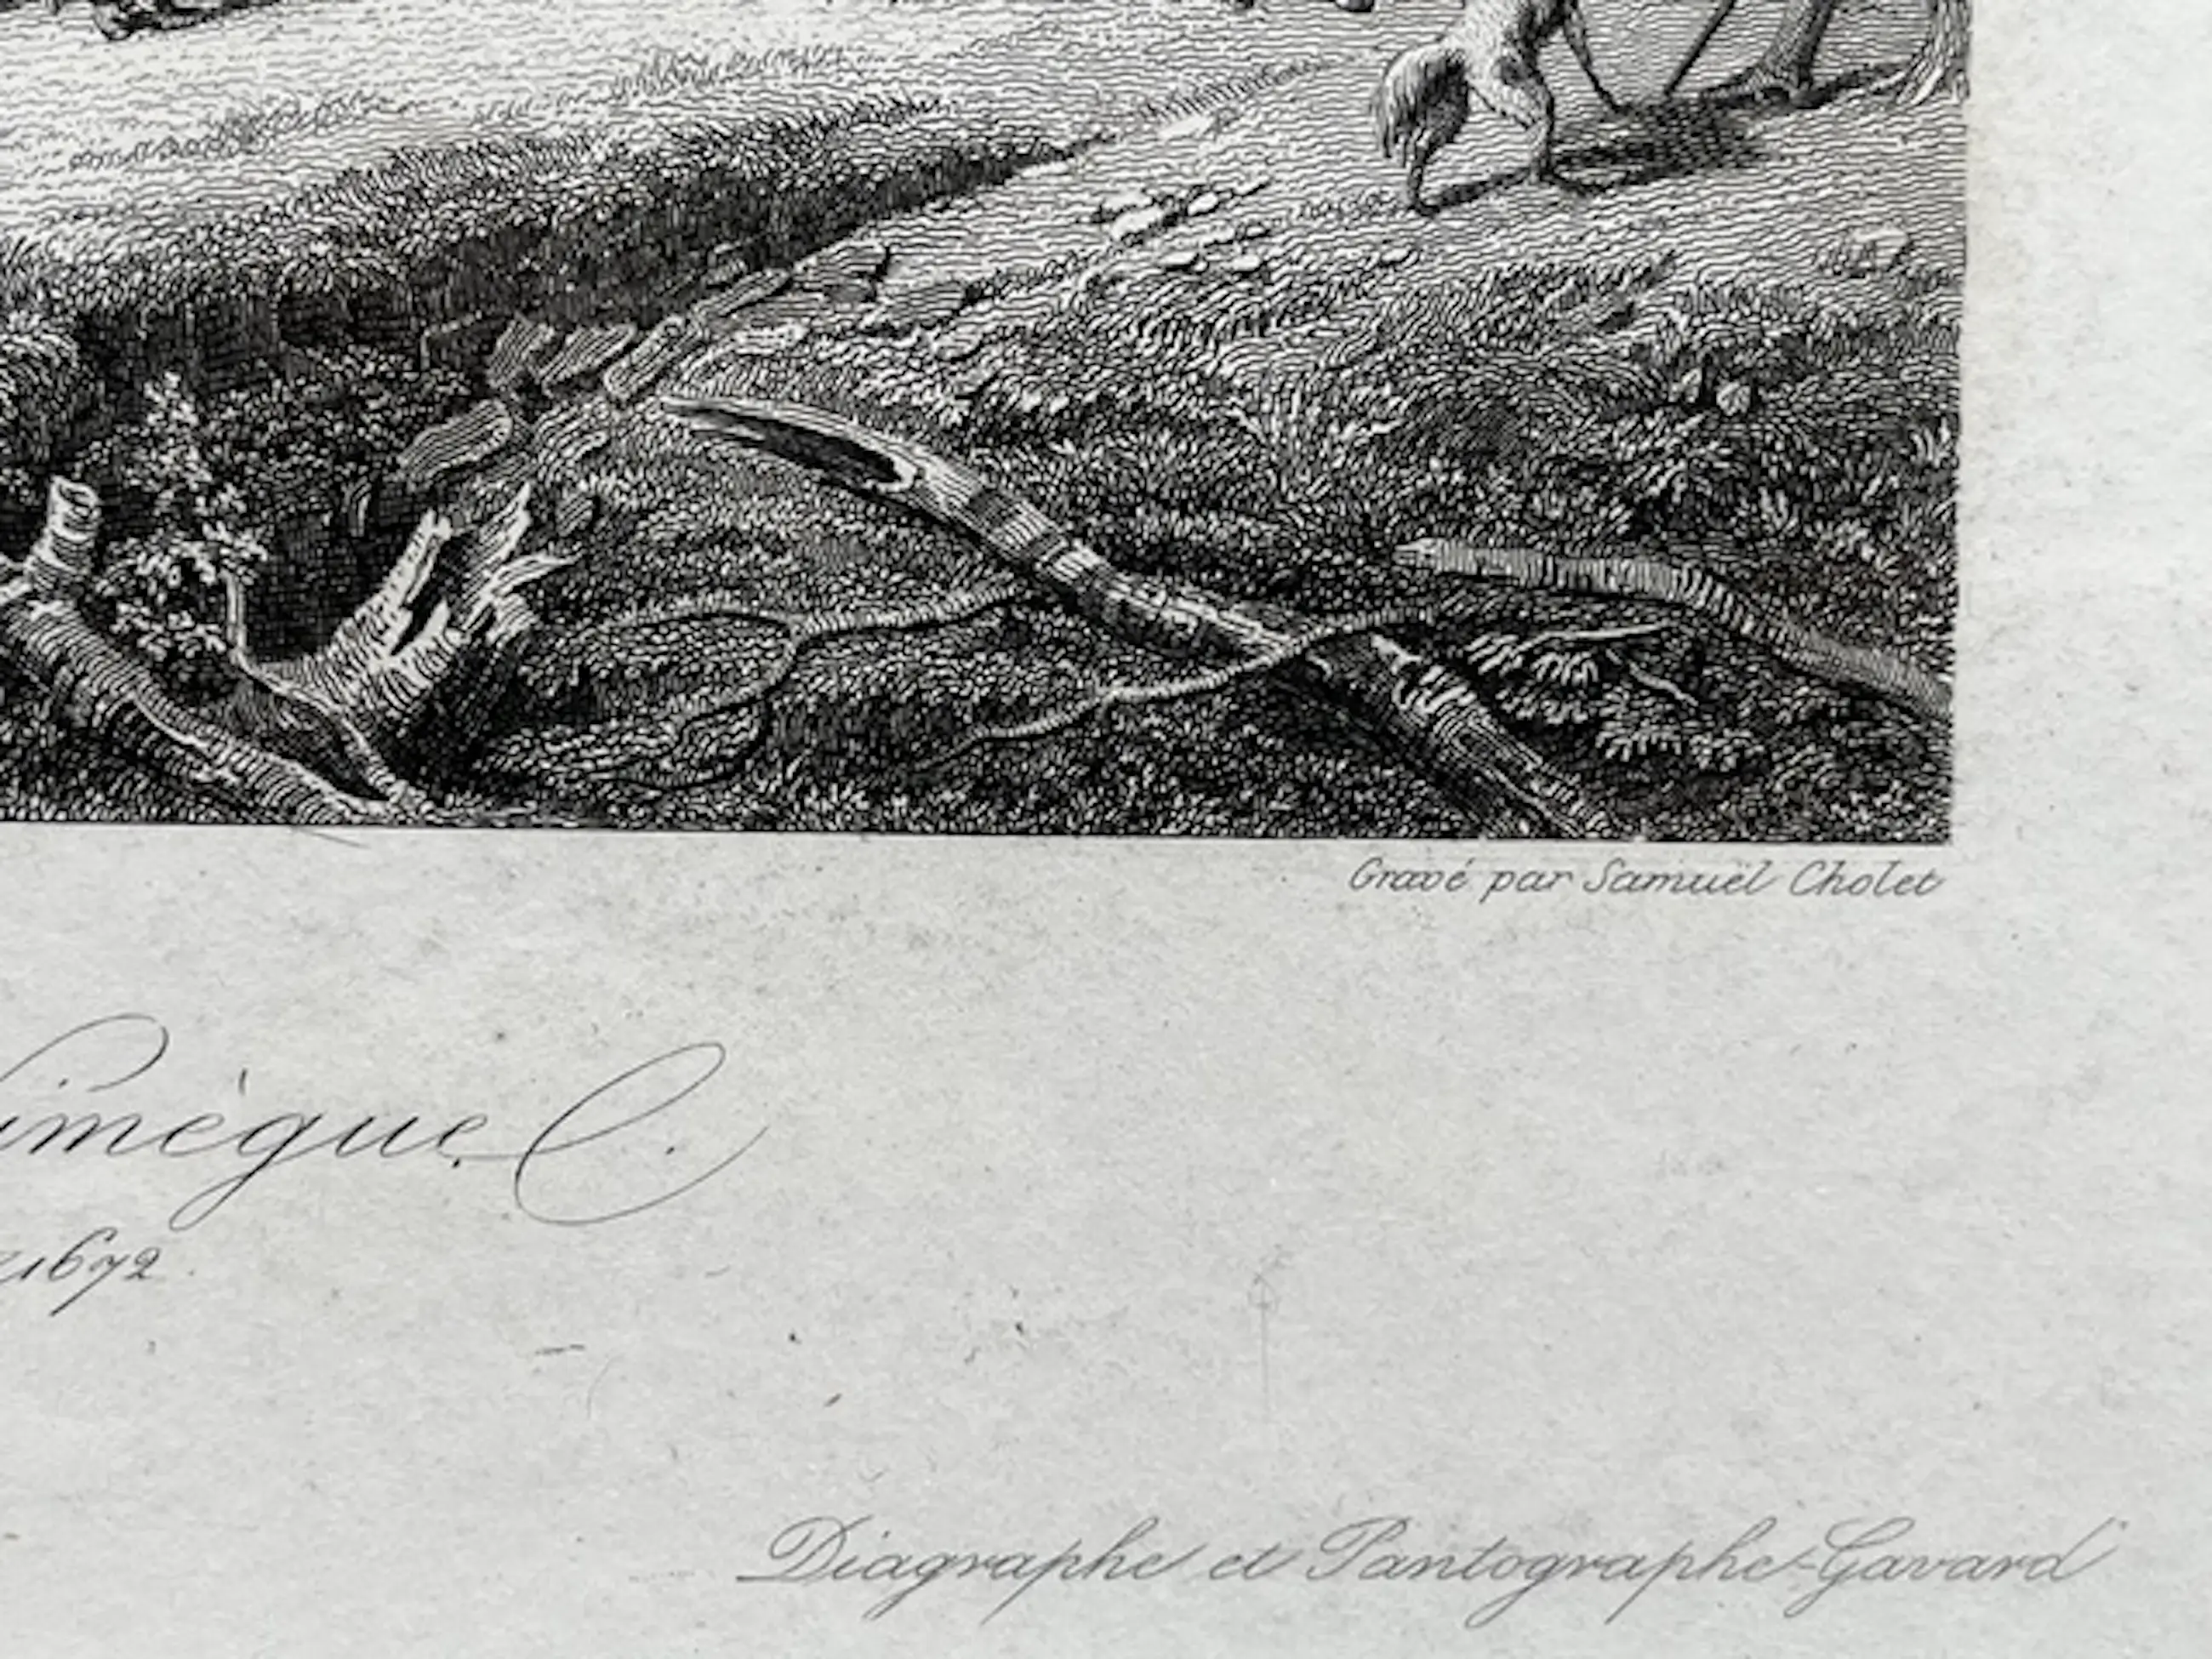 Gravé par Samuël Cholet
imègue.
1672.
Diagraphe et Pantographe-Gavard